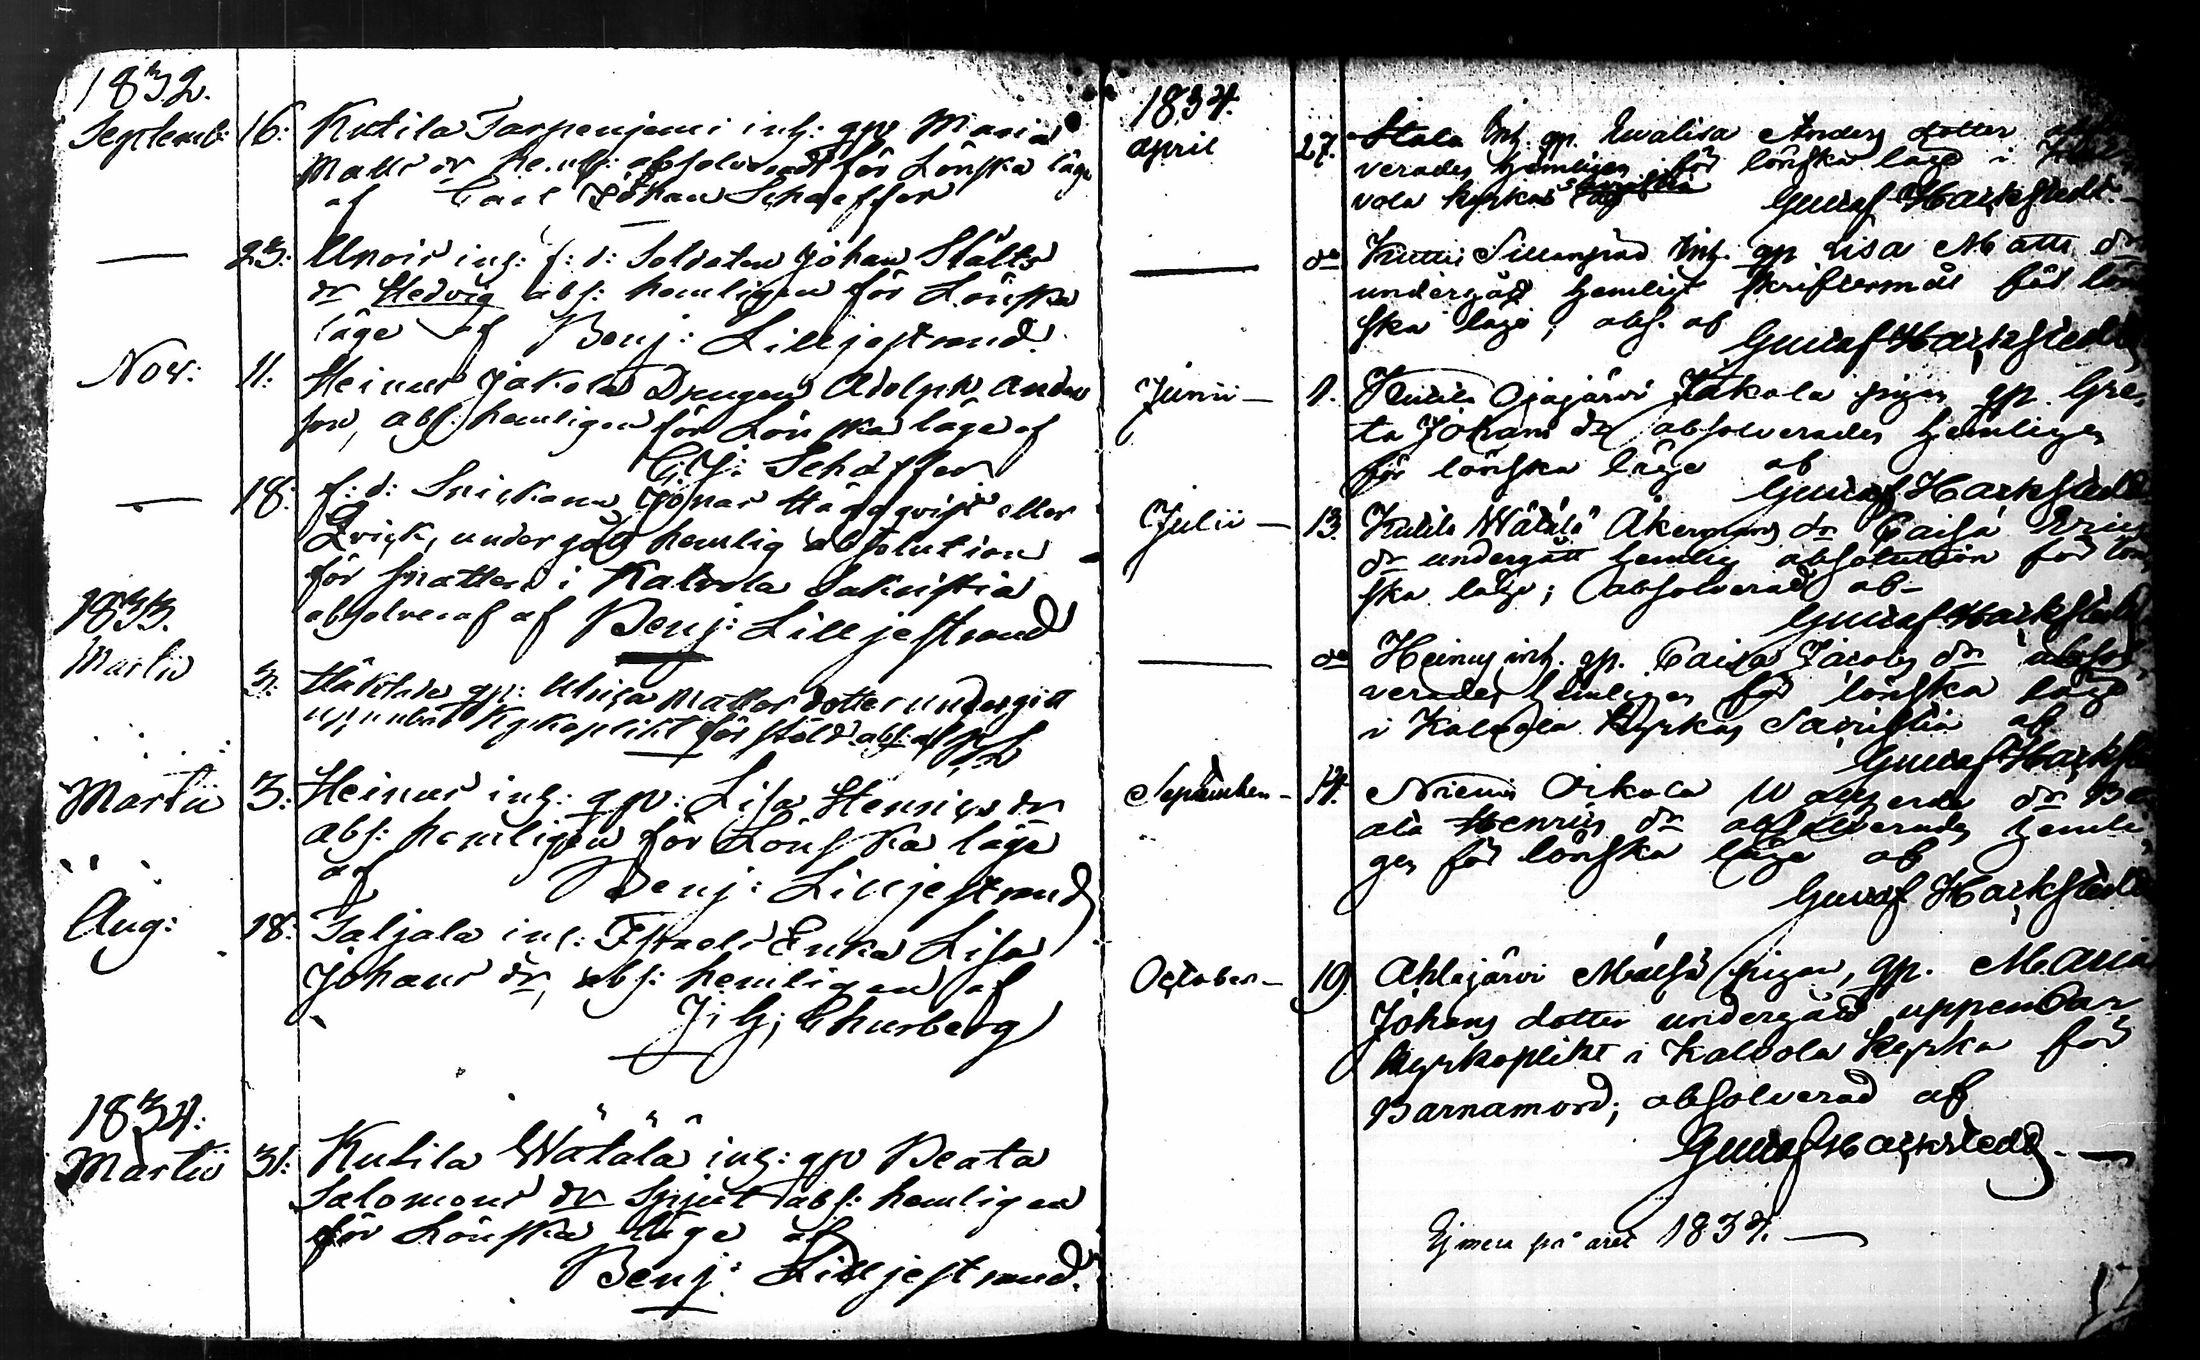 1832.
Septemb: 16: Kutila Tarpenjemi inh: gp. Maria
Matts dr hemlg: absolverad för Lönska läge
af Carl Johan Schæffer
— 23: Unois inh: f: d: Soldaten Johan Stålts
dr Hedvig abs: hemligen för Lönska
läge af Benj: Lilljestrand.
Nov: 11: Heinus Jakola Drengen Adolph Anders
son, abs: hemligen för Lönska läge af
C: J: Schäffer
— 18: f: d: Snickaren Jonas Häggqvist eller
Qvick, undergått hemlig absolution
för snatteri i Kalvola Sakristia
absolverad af Benj: Lilljestrand
1833.
Martii 3: gp: Ulrica Matts dotter undergått
uppenbar Kyrkoplikt för stöld abs: af B: L
Martii 3: Heinus inh: gp: Lisa Henrics dr
abs: hemligen för Lönska läge
af Benj: Lilljestrand
Aug: 18: Taljala inh: Israels Enka Lisa
Johans dr, abs: hemligen af
J: G: Churberg
1834:
Martii 31: Kutila Wätälä inh: gp Beata
Salomons dr Spjut abs: hemligen
för Lönska läge af
Benj: Lilljestrand.
1834.
April 27. Inh. gp. Ewalisa Anders dotter absol
verades hemligen för lönska läge i Kal
vola kyrkas
Gustaf Hackstedt.
— do Sillanpää Inh. gp Lisa Matts dr
undergått hemligt skriftermål för lön
ska läge; abs. af
Gustaf Hackstedt
Junii — 1. Kutila Ojajärvi Jakola pigan gp. Gre
ta Johans dr absolverades hemligen
för lönska läge af
Gustaf Hackstedt
Julii — 13. Kutila Wätälä Åkermans dr Caisa Erics
dr undergått hemlig absolution för lön
ska läge; absolverad af
Gustaf Hackstedt
— do Heinus inh. gp. Caisa Jacobs dr absol
verades hemligen för lönska läge
i Kalvola Kyrkas Sacristia af
Gustaf Hackste
September — 14. Niemis Oikola dr Be
ata Henrics dr absolverades hemli
gen för lönska läge af
Gustaf Hackstedt
October — 19. Ahlajärvi pigan, gp. Maria
Johans dotter undergåt uppenbar
kyrkoplikt i Kalvola Kyrka för
Barnamord; absolverad af
Gustaf Hackstedt. —
Ej mera på året 1834. —